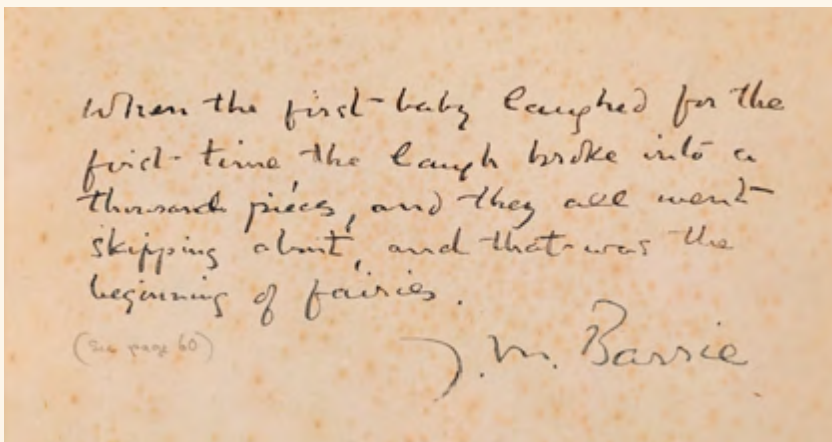 When the first baby laughed for the
first time the laugh broke into a
thousand pieces, and they all went
skipping about, and that was the
beginning of fairies.
(See page 60)
J. M. Barrie